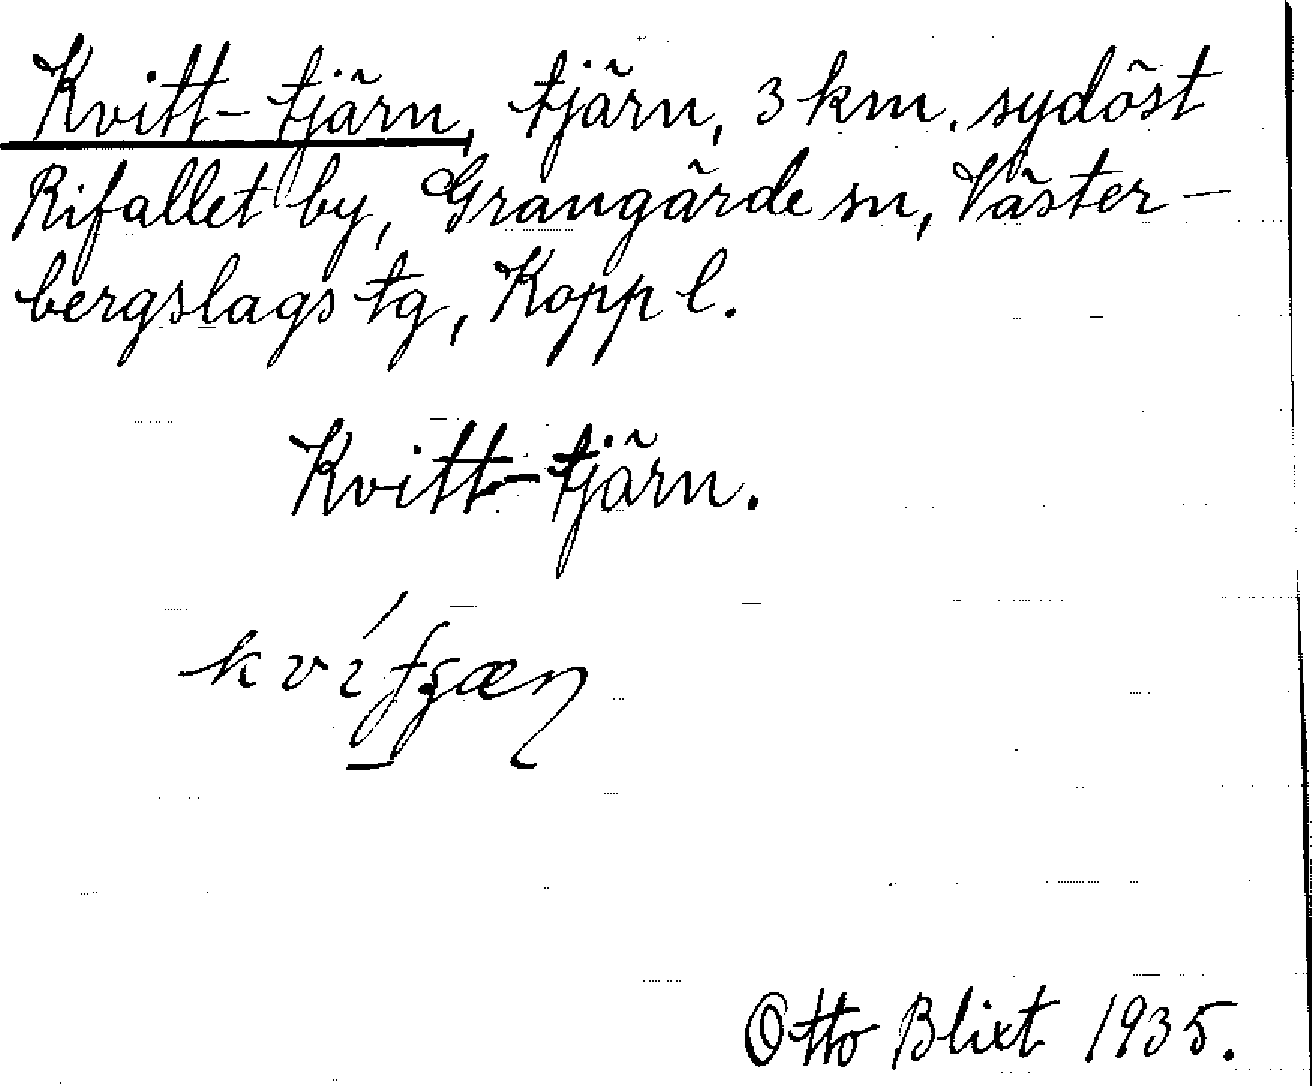 Kvitt-tjärn, tjärn, 3 km. sydöst
Rifallet by, Grangärde sn, Väster-
bergslags tg, Kopp l.
Kvitt-tjärn.
Otto Blixt 1935.